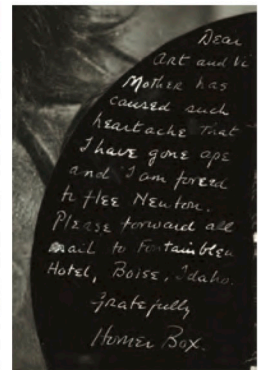 Dear
Art and Vi
Mother has
caused such
heartache that
I have gone ape
and I am forced
to flee Newton.
Please forward all
mail to Fontainbleu
Hotel, Boise, Idaho.
Gratefully
Homer Box.